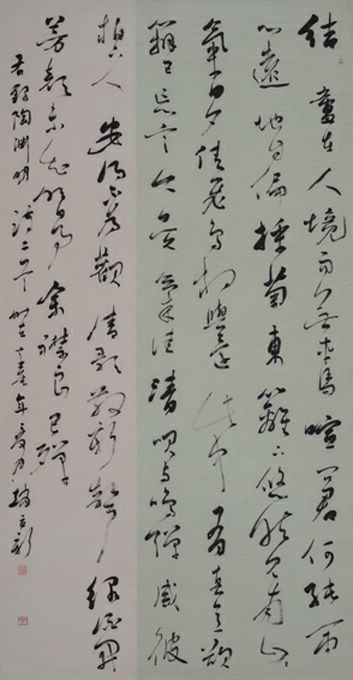 结廬在人境而无车马喧君何能尔
心遠地自偏採菊東籬下悠然见南山山
氣日夕佳飛鸟相與還此中有真意欲
辩已忘言今日天氣佳清吹与鸣弹感彼
柏下人安得不为歡清歌散新声绿酒开
芳颜未知明日事余襟良已殚
右録陶渊明诗二首 年夏月